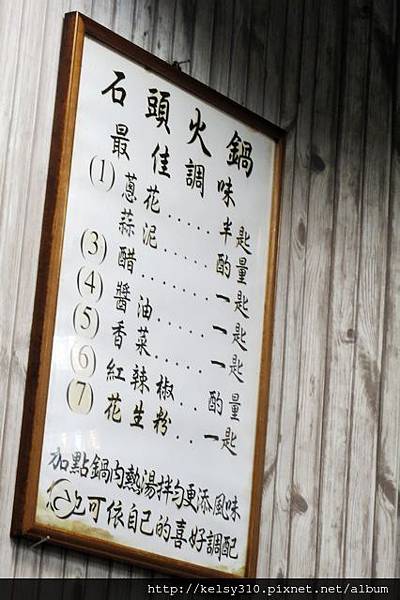 石頭火鍋
最佳調味
(1) 蔥花......半匙
蒜泥......酌量
(3) 醋......一匙
(4) 醬油......一匙
(5) 香菜......一匙
(6) 紅辣椒...酌量
(7) 花生粉...一匙
加點鍋內熱湯拌勻更添風味
也可依自己的喜好調配
http://kelsy310.pixnet.net/album